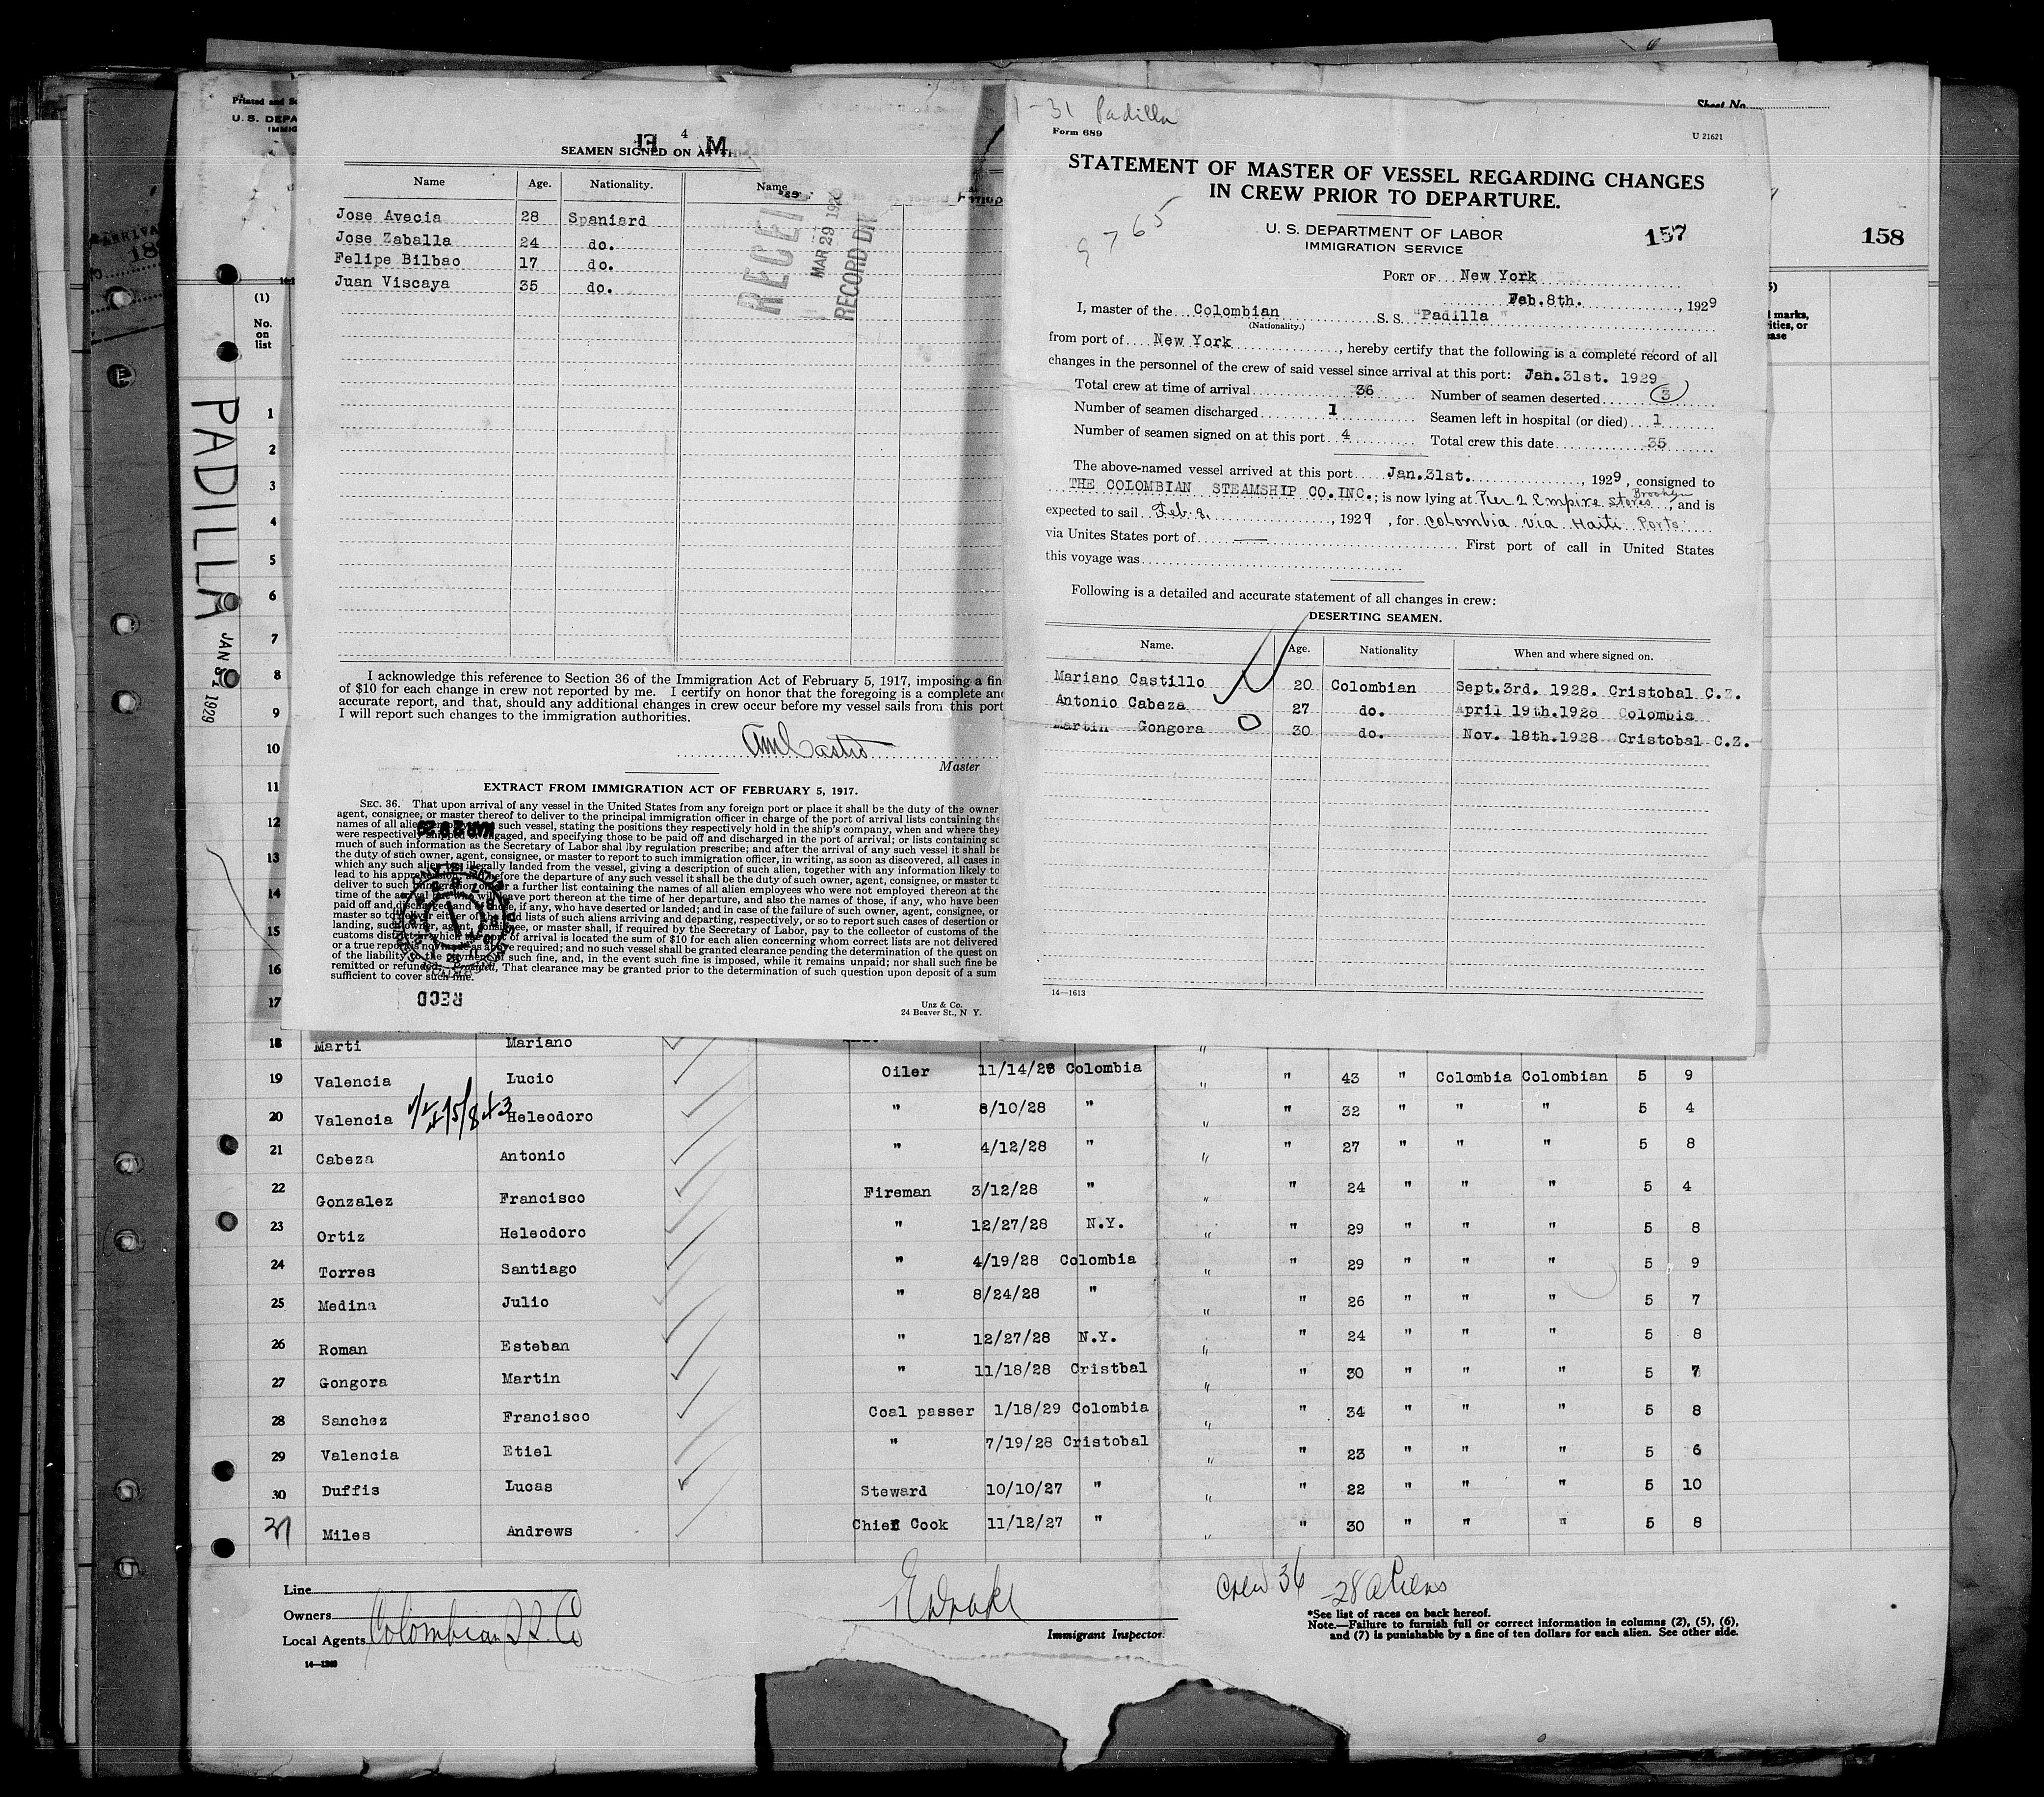 Printed and
U. S. DEPA
IMMIG
Sheet No.
158
(1)
No.
on
list
marks,
ities, or
ease
PADILLA
JAN 31 1929
1
2
3
4
5
6
7
8
9
10
11
12
13
14
15
16
17
4
SEAMEN SIGNED ON AT TH
Name Age. Nationality. Name
Jose Avecia 28 Spaniard
Jose Zaballa 24 do.
Felipe Bilbao 17 do.
Juan Viscaya 35 do.
MAR 29
RECORD DIV
I acknowledge this reference to Section 36 of the Immigration Act of February 5, 1917, imposing a fin
of $10 for each change in crew not reported by me. I certify on honor that the foregoing is a complete and
accurate report, and that, should any additional changes in crew occur before my vessel sails from this port
I will report such changes to the immigration authorities.
Master
EXTRACT FROM IMMIGRATION ACT OF FEBRUARY 5, 1917.
SEC. 36. That upon arrival of any vessel in the United States from any foreign port or place it shall be the duty of the owner,
agent, consignee, or master thereof to deliver to the principal immigration officer in charge of the port of arrival lists containing the
names of all alien such vessel, stating the positions they respectively hold in the ship's company, when and where they
were respectively shipped or engaged, and specifying those to be paid off and discharged in the port of arrival; or lists containing so
much of such information as the Secretary of Labor shal lby regulation prescribe; and after the arrival of any such vessel it shall be
the duty of such owner, agent, consignee, or master to report to such immigration officer, in writing, as soon as discovered, all cases in
which any such alien has illegally landed from the vessel, giving a description of such alien, together with any information likely to
lead to his apprehension; and before the departure of any such vessel it shall be the duty of such owner, agent, consignee, or master to
deliver to such immigration officer a further list containing the names of all alien employees who were not employed thereon at the
time of the arrival but who will leave port thereon at the time of her departure, and also the names of those, if any, who have been
paid off and discharged and of those, if any, who have deserted or landed; and in case of the failure of such owner, agent, consignee, or
master so to deliver either of the said lists of such aliens arriving and departing, respectively, or so to report such cases of desertion or
landing, such owner, agent, consignee, or master shall, if required by the Secretary of Labor, pay to the collector of customs of the
customs district in which the port of arrival is located the sum of $10 for each alien concerning whom correct lists are not delivered
or a true report is not made as above required; and no such vessel shall be granted clearance pending the determination of the quest on
of the liability to the payment of such fine, and, in the event such fine is imposed, while it remains unpaid; nor shall such fine be
remitted or refunded: Provided, That clearance may be granted prior to the determination of such question upon deposit of a sum
sufficient to cover such fine.
RECD
Unz & Co.
24 Beaver St., N Y.
1-31 Padilla
Form 689
U 21621
STATEMENT OF MASTER OF VESSEL REGARDING CHANGES
IN CREW PRIOR TO DEPARTURE.
9765
U. S. DEPARTMENT OF LABOR
IMMIGRATION SERVICE
157
PORT OF New York
Feb.8th. , 1929
I, master of the Colombian S. S. "Padilla"
(Nationality.)
from port of New York , hereby certify that the following is a complete record of all
changes in the personnel of the crew of said vessel since arrival at this port: Jan.31st. 1929
Total crew at time of arrival 36 Number of seamen deserted 3
Number of seamen discharged 1 Seamen left in hospital (or died) 1
Number of seamen signed on at this port 4 Total crew this date 35
The above-named vessel arrived at this port Jan.31st. , 1929, consigned to
THE COLOMBIAN STEAMSHIP CO.INC.; is now lying at Pier 2 Empire stores Brooklyn, and is
expected to sail Feb 8, , 1929 , for Colombia via Haiti Ports
via Unites States port of First port of call in United States
this voyage was
Following is a detailed and accurate statement of all changes in crew:
DESERTING SEAMEN.
Name. Age. Nationality When and where signed on.
Mariano Castillo 20 Colombian Sept.3rd. 1928. Cristobal C.Z.
Antonio Cabeza 27 do. April 19th.1928 Colombia
Martin Gongora 30 do. Nov. 18th.1928 Cristobal C.Z.
14—1613
18 Marti Mariano
19 Valencia Lucio Oiler 11/14/28 Colombia " " 43 " Colombia Colombian 5 9
20 Valencia Heleodoro " 8/10/28 " " " 32 " " " 5 4
21 Cabeza Antonio " 4/12/28 " " " 27 " " " 5 8
22 Gonzalez Francisco Fireman 3/12/28 " " " 24 " " " 5 4
23 Ortiz Heleodoro " 12/27/28 N.Y. " " 29 " " " 5 8
24 Torres Santiago " 4/19/28 Colombia " " 29 " " " 5 9
25 Medina Julio " 8/24/28 " " " 26 " " " 5 7
26 Roman Esteban " 12/27/28 N.Y. " " 24 " " " 5 8
27 Gongora Martin " 11/18/28 Cristbal " " 30 " " " 5 7
28 Sanchez Francisco Coal passer 1/18/29 Colombia " " 34 " " " 5 8
29 Valencia Etiel " 7/19/28 Cristobal " " 23 " " " 5 6
30 Duffis Lucas Steward 10/10/27 " " " 22 " " " 5 10
31 Miles Andrews Chief Cook 11/12/27 " " " 30 " " " 5 8
Line
Owners
Local Agents Colombian S.S. Co
14—1240
Immigrant Inspector.
Crew 36 -28 aliens
*See list of races on back hereof.
Note.—Failure to furnish full or correct information in columns (2), (5), (6),
and (7) is punishable by a fine of ten dollars for each alien. See other side.